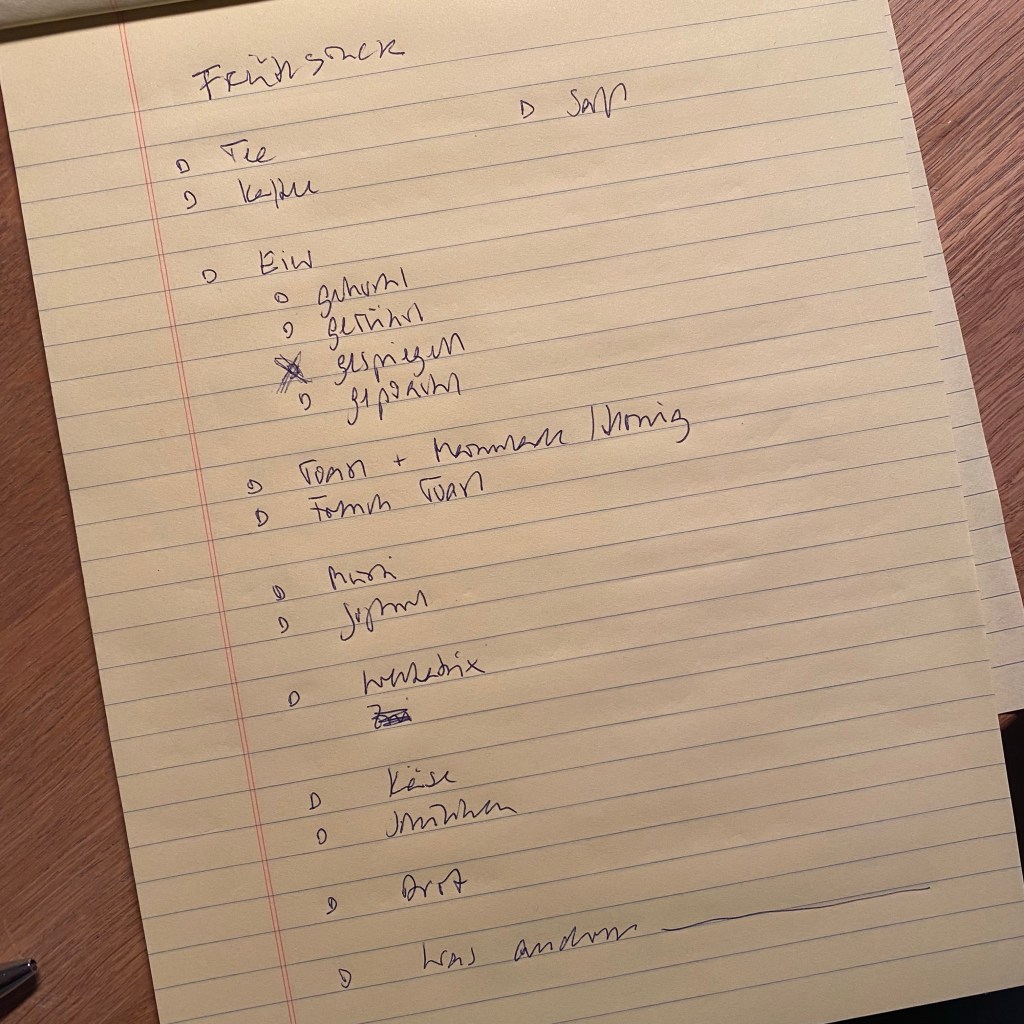 Frühstück
Saft
Tee
Kaffee
Eier
gekocht
gerührt
gespiegelt
pochiert
Toast + Marmelade / Honig
French Toast
Müsli
Joghurt
Weetabix
Käse
Brot
Was anderes